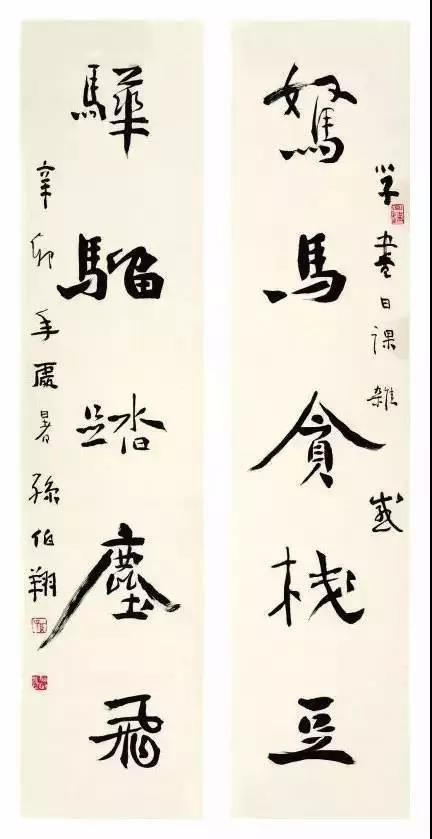 学書日課雜感
駑馬貪栈豆
驊騮踏塵飛
辛卯年處暑孫伯翔